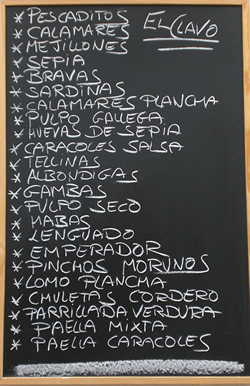 * PESCADITOS
EL CLAVO
* CALAMARES
* MEJILLONES
* SEPIA
* BRAVAS
* SARDINAS
* CALAMARES PLANCHA
* PULPO GALLEGA
* HUEVAS DE SEPIA
* CARACOLES SALSA
* TELLINAS
* ALBONDIGAS
* GAMBAS
* PULPO SECO
* HABAS
* LENGUADO
* EMPERADOR
* PINCHOS MORUNOS
* LOMO PLANCHA
* CHULETAS CORDERO
* PARRILLADA VERDURA
* PAELLA MIXTA
* PAELLA CARACOLES